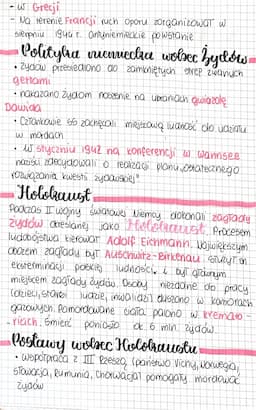 - w Grecji
- Na terenie Francji ruch oporu zorganizował w
sierpniu 1944 r. antyniemieckie powstanie
Polityka niemiecka wobec Żydów
• Żydów przesiedlono do zamkniętych stref zwanych
gettami
• nakazano Żydom noszenie na ubraniach gwiazdę
Dawida
• Członkowie SS zachęcali miejscową ludność do udziału
w mordach
• W styczniu 1942 na konferencji w Wannsee
naziści zdecydowali o realizacji planu „ostatecznego
rozwiązania kwestii żydowskiej"
Holokaust
Podczas II wojny światowej Niemcy dokonali zagłady
Żydów określanej jako Holokaust. Procesem
ludobójstwa kierował Adolf Eichmann. Największym
obozem zagłady był Auschwitz-Birkenau. Służył on
eksterminacji polskiej ludności, a był głównym
miejscem zagłady Żydów. Osoby niezdolne do pracy
(dzieci, starsi ludzie, inwalidzi) duszono w komorach
gazowych. Pomordowane ciała palono w kremato-
- riach. Śmierć poniosło ok. 6 mln. Żydów.
Postawy wobec Holokaustu
• współpraca z III Rzeszą (państwo Vichy, Norwegia,
Słowacja, Rumunia, Chorwacja) pomagały mordować
Żydów